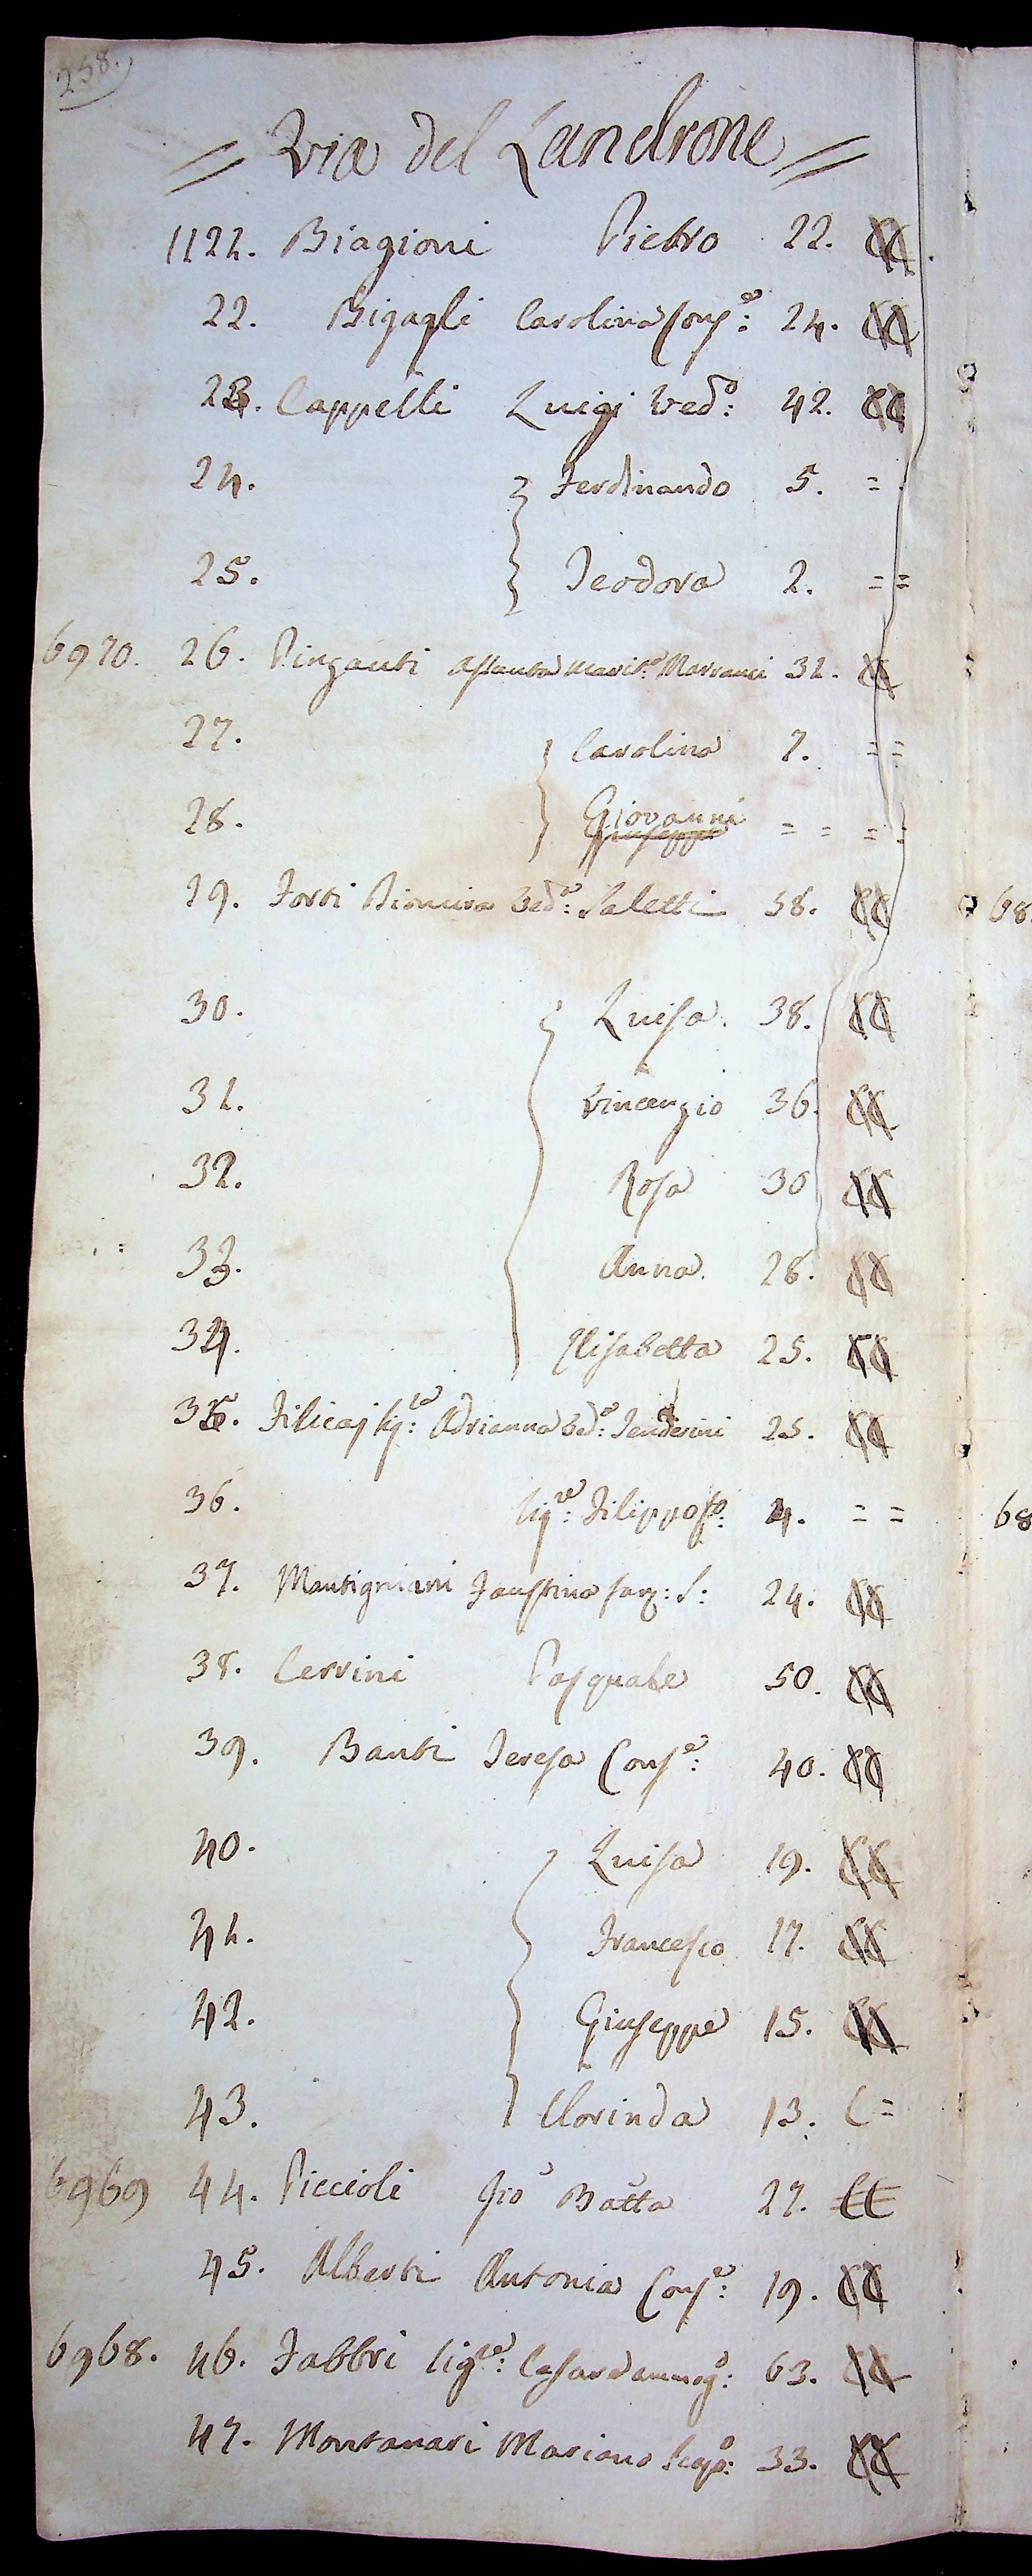 258.
= Via del Landrone =
1121. Biagioni Pietro 22. CC
22. Bigagli Carolina Cons:e 24. CC
23. Cappelli Luigi Ved:o 42. CC
24. Ferdinando 5. =
25. Teodora 2. = =
6970. 26. Pinzauti Assunta marit:a Marranci 32. CC
27. Carolina 7. = =
28. Giovanni = = = =
29. Forti Ved:a Paletti 58. CC
30. Luisa. 38. CC
31. Vincenzio 36. CC
32. Rosa 30 CC
33. Anna. 28. CC
34. Elisabetta 25. CC
35. Filicaj Sig:ra Adrianna Ved:a 25. CC
36. Sig:re Filippo 4. = =
37. Mantigniani Faustina 24. CC
38. Cervini Pasquale 50. CC
39. Banti Teresa Cons:e 40. CC
40. Luisa 19. CC
41. Francesco 17. CC
42. Giuseppe 15. CC
43. Clorinda 13. C =
6969 44. Piccioli Gio Batta 27. CC
45. Alberti Antonia Cons:e 19. CC
6968. 46. Fabbri Sig:re Cesare ammog:o 63. CC
47. Montanari Mariano 33. CC
68
68